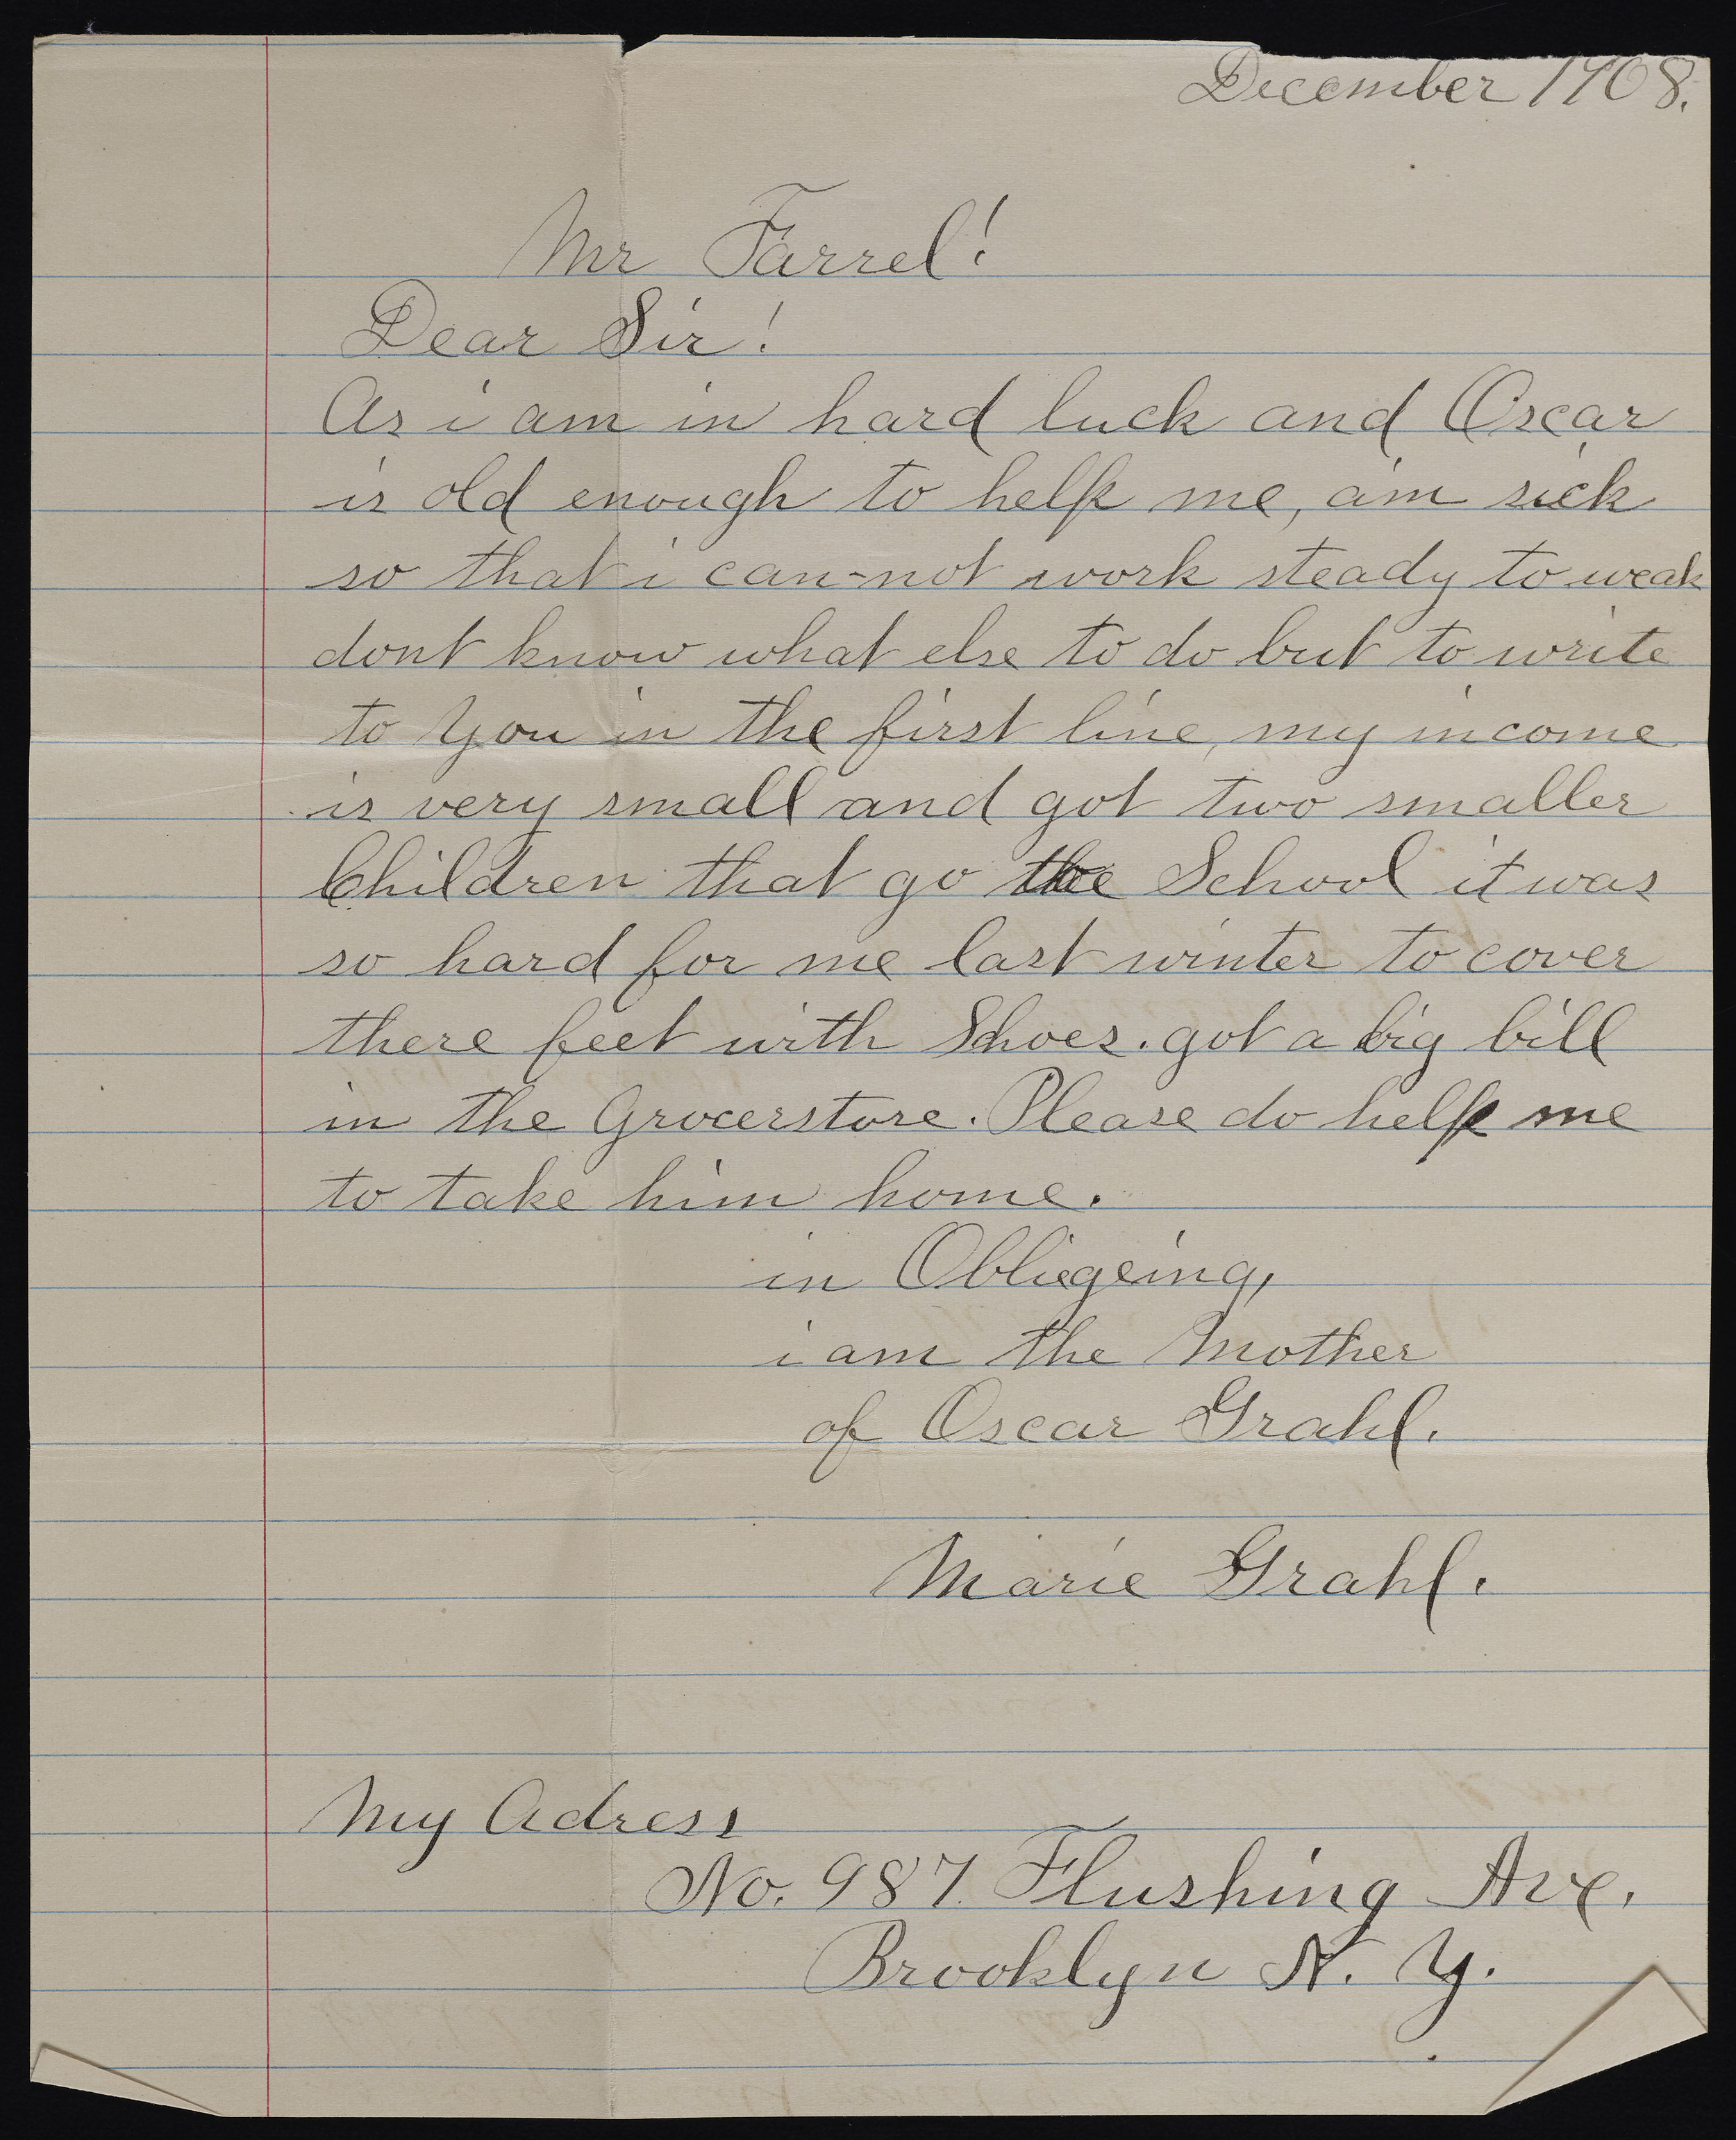 December 1908.
Mr Farrel!
Dear Sir!
As i am in hard luck and Oscar
is old enough to help me, am sick
so that i can-not work steady to weak
dont know what else to do but to write
to You in the first line, my income
is very small and got two smaller
Children that go to School it was
so hard for me last winter to cover
there feet with Shoes. got a big bill
in the Grocerstore. Please do help me
to take him home.
in Obliegeing,
i am the Mother
of Oscar Grahl.
Marie Grahl.
My Adress
No. 987 Flushing Ave.
Brooklyn N. Y.